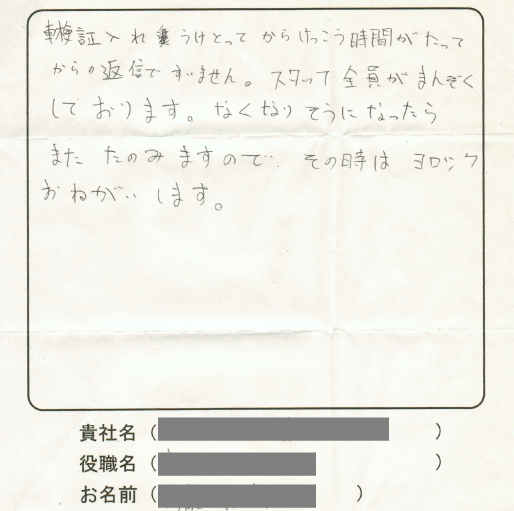 車検証入れ うけとって からけっこう時間がたって
からの返信ですいません。スタッフ全員がまんぞく
しております。なくなりそうになったら
また たのみますので、その時は ヨロシク
おねがいします。
貴社名（　　　）
役職名（　　　）
お名前（　　　）